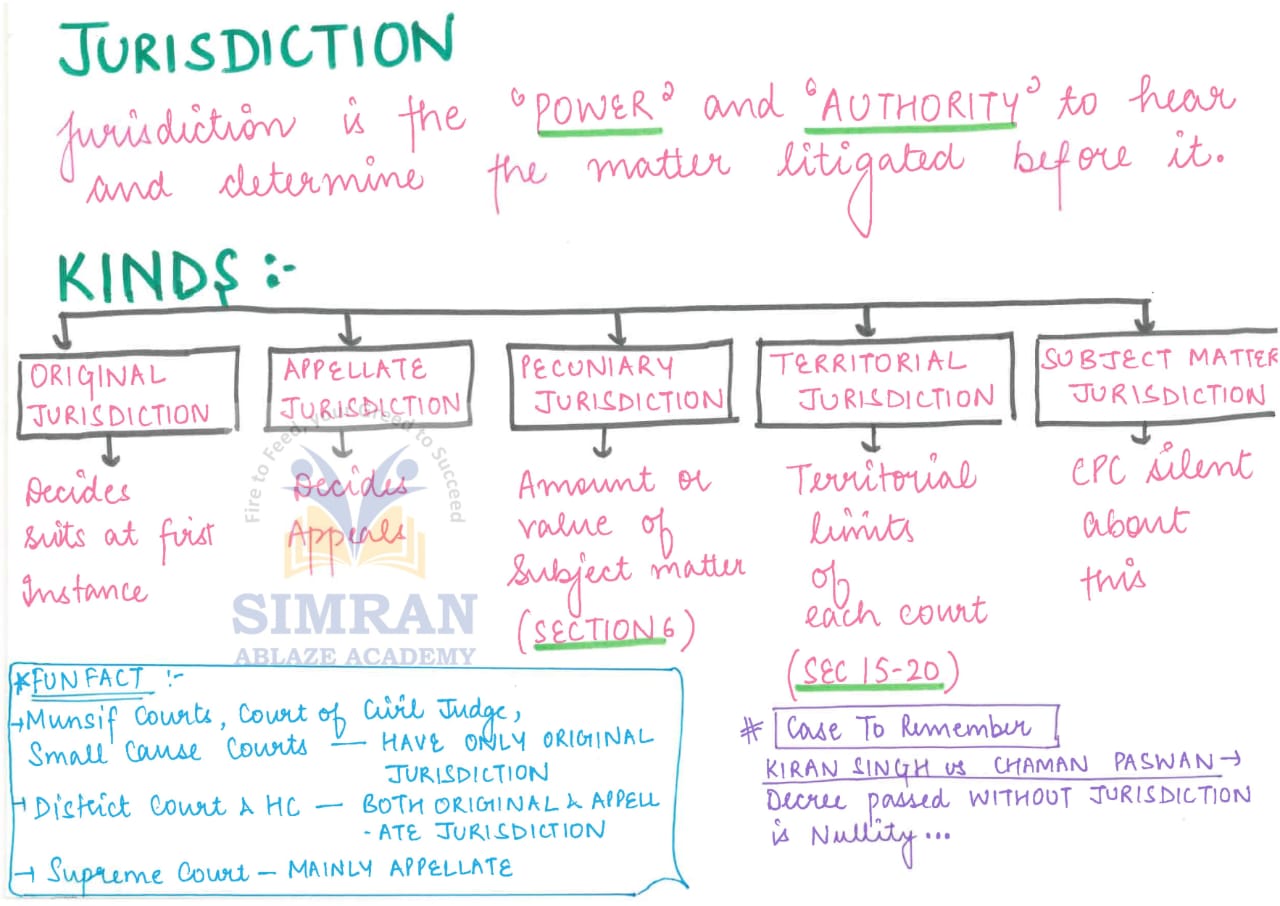 JURISDICTION
Jurisdiction is the "POWER" and "AUTHORITY" to hear
and determine the matter litigated before it.
KINDS :-
ORIGINAL
JURISDICTION
Decides
suits at first
Instance
APPELLATE
JURISDICTION
Decides
Appeals
PECUNIARY
JURISDICTION
Amount or
value of
Subject matter
(SECTION 6)
TERRITORIAL
JURISDICTION
Territorial
limits
of
each court
(SEC 15-20)
SUBJECT MATTER
JURISDICTION
CPC silent
about
this
Fire to Feed, your Greed to Succeed
SIMRAN
ABLAZE ACADEMY
*FUN FACT :-
→ Munsif Courts, Court of Civil Judge,
Small Cause Courts — HAVE ONLY ORIGINAL
JURISDICTION
→ District Court & HC — BOTH ORIGINAL & APPELL
-ATE JURISDICTION
→ Supreme Court — MAINLY APPELLATE
# Case To Remember
KIRAN SINGH vs CHAMAN PASWAN →
Decree passed WITHOUT JURISDICTION
is Nullity...